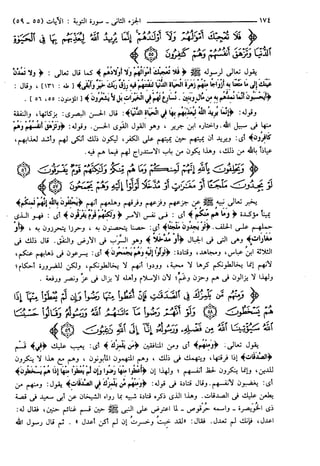 ١٧٤ الجزء الثانى - سورة التوبة : الآيات (٥٥ - ٥٩)
﴿ فَلَا تُعْجِبْكَ أَمْوَالُهُمْ وَلَا أَوْلَادُهُمْ إِنَّمَا يُرِيدُ اللَّهُ لِيُعَذِّبَهُم بِهَا فِي الْحَيَاةِ
الدُّنْيَا وَتَزْهَقَ أَنفُسُهُمْ وَهُمْ كَافِرُونَ ﴾
يقول تعالى لرسوله ﷺ ﴿ فَلَا تُعْجِبْكَ أَمْوَالُهُمْ وَلَا أَوْلَادُهُمْ ﴾ كما قال تعالى : ﴿ وَلَا تَمُدَّنَّ
عَيْنَيْكَ إِلَىٰ مَا مَتَّعْنَا بِهِ أَزْوَاجًا مِّنْهُمْ زَهْرَةَ الْحَيَاةِ الدُّنْيَا لِنَفْتِنَهُمْ فِيهِ وَرِزْقُ رَبِّكَ خَيْرٌ وَأَبْقَىٰ ﴾ [ طه : ١٣١] ، وقال :
﴿ أَيَحْسَبُونَ أَنَّمَا نُمِدُّهُم بِهِ مِن مَّالٍ وَبَنِينَ . نُسَارِعُ لَهُمْ فِي الْخَيْرَاتِ بَل لَّا يَشْعُرُونَ ﴾ [المؤمنون: ٥٥، ٥٦] .
وقوله: ﴿ إِنَّمَا يُرِيدُ اللَّهُ لِيُعَذِّبَهُم بِهَا فِي الْحَيَاةِ الدُّنْيَا ﴾: قال الحسن البصرى: بزكاتها، والنفقة
منها فى سبيل الله. واختاره ابن جرير ، وهو القول القوى الحسن. وقوله: ﴿ وَتَزْهَقَ أَنفُسُهُمْ وَهُمْ
كَافِرُونَ ﴾ أى: ويريد أن يميتهم حين يميتهم على الكفر، ليكون ذلك أنكى لهم وأشد لعذابهم،
عياذًا بالله من ذلك، وهذا يكون من باب الاستدراج لهم فيما هم فيه.
﴿ وَيَحْلِفُونَ بِاللَّهِ إِنَّهُمْ لَمِنكُمْ وَمَا هُم مِّنكُمْ وَلَٰكِنَّهُمْ قَوْمٌ يَفْرَقُونَ
لَوْ يَجِدُونَ مَلْجَأً أَوْ مَغَارَاتٍ أَوْ مُدَّخَلًا لَّوَلَّوْا إِلَيْهِ وَهُمْ يَجْمَحُونَ ﴾
يخبر تعالى نبيه ﷺ عن جزعهم وفزعهم وفرقهم وهلعهم أنهم ﴿ يَحْلِفُونَ بِاللَّهِ إِنَّهُمْ لَمِنكُمْ ﴾
يمينًا مؤكدة ﴿ وَمَا هُم مِّنكُمْ ﴾ أى : فى نفس الأمر ﴿ وَلَٰكِنَّهُمْ قَوْمٌ يَفْرَقُونَ ﴾ أى : فهو الذى
حملهم على الحلف. ﴿ لَوْ يَجِدُونَ مَلْجَأً ﴾ أى: حصنا يتحصنون به ، وحرزا يتحرزون به ، ﴿ أَوْ
مَغَارَاتٍ ﴾ وهى التى فى الجبال ﴿ أَوْ مُدَّخَلًا ﴾ وهو السرب فى الأرض والنفق. قال ذلك فى
الثلاثة ابن عباس، ومجاهد، وقتادة: ﴿ لَّوَلَّوْا إِلَيْهِ وَهُمْ يَجْمَحُونَ ﴾ أى: يسرعون فى ذهابهم عنكم،
لأنهم إنما يخالطونكم كرها لا محبة، وودوا أنهم لا يخالطونكم، ولكن للضرورة أحكام؛
ولهذا لا يزالون فى هم وحزن وغم؛ لأن الإسلام وأهله لا يزال فى عز ونصر ورفعة .
﴿ وَمِنْهُم مَّن يَلْمِزُكَ فِي الصَّدَقَاتِ فَإِنْ أُعْطُوا مِنْهَا رَضُوا وَإِن لَّمْ يُعْطَوْا مِنْهَا إِذَا
هُمْ يَسْخَطُونَ وَلَوْ أَنَّهُمْ رَضُوا مَا آتَاهُمُ اللَّهُ وَرَسُولُهُ وَقَالُوا حَسْبُنَا اللَّهُ
سَيُؤْتِينَا اللَّهُ مِن فَضْلِهِ وَرَسُولُهُ إِنَّا إِلَى اللَّهِ رَاغِبُونَ ﴾
يقول تعالى: ﴿ وَمِنْهُم ﴾ أى ومن المنافقين ﴿ مَّن يَلْمِزُكَ ﴾ أى: يعيب عليك ﴿ فِي ﴾ قسم
﴿ الصَّدَقَاتِ ﴾ إذا فرقتها، ويتهمك فى ذلك ، وهم المتهمون المأبونون ، وهم مع هذا لا ينكرون
للدين، وإنما ينكرون لحظ أنفسهم ؛ ولهذا إن ﴿ أُعْطُوا مِنْهَا رَضُوا وَإِن لَّمْ يُعْطَوْا مِنْهَا إِذَا هُمْ يَسْخَطُونَ ﴾
أى: يغضبون لأنفسهم. وقال قتادة فى قوله: ﴿ وَمِنْهُم مَّن يَلْمِزُكَ فِي الصَّدَقَاتِ ﴾ يقول: ومنهم من
يطعن عليك فى الصدقات. وهذا الذى ذكره قتادة شبيه بما رواه الشيخان عن أبى سعيد فى قصة
ذى الخويصرة - واسمه حرقوص - لما اعترض على النبى ﷺ حين قسم غنائم حنين، فقال له:
اعدل، فإنك لم تعدل. فقال: «لقد خبت وخسرت إن لم أكن أعدل» . ثم قال رسول الله